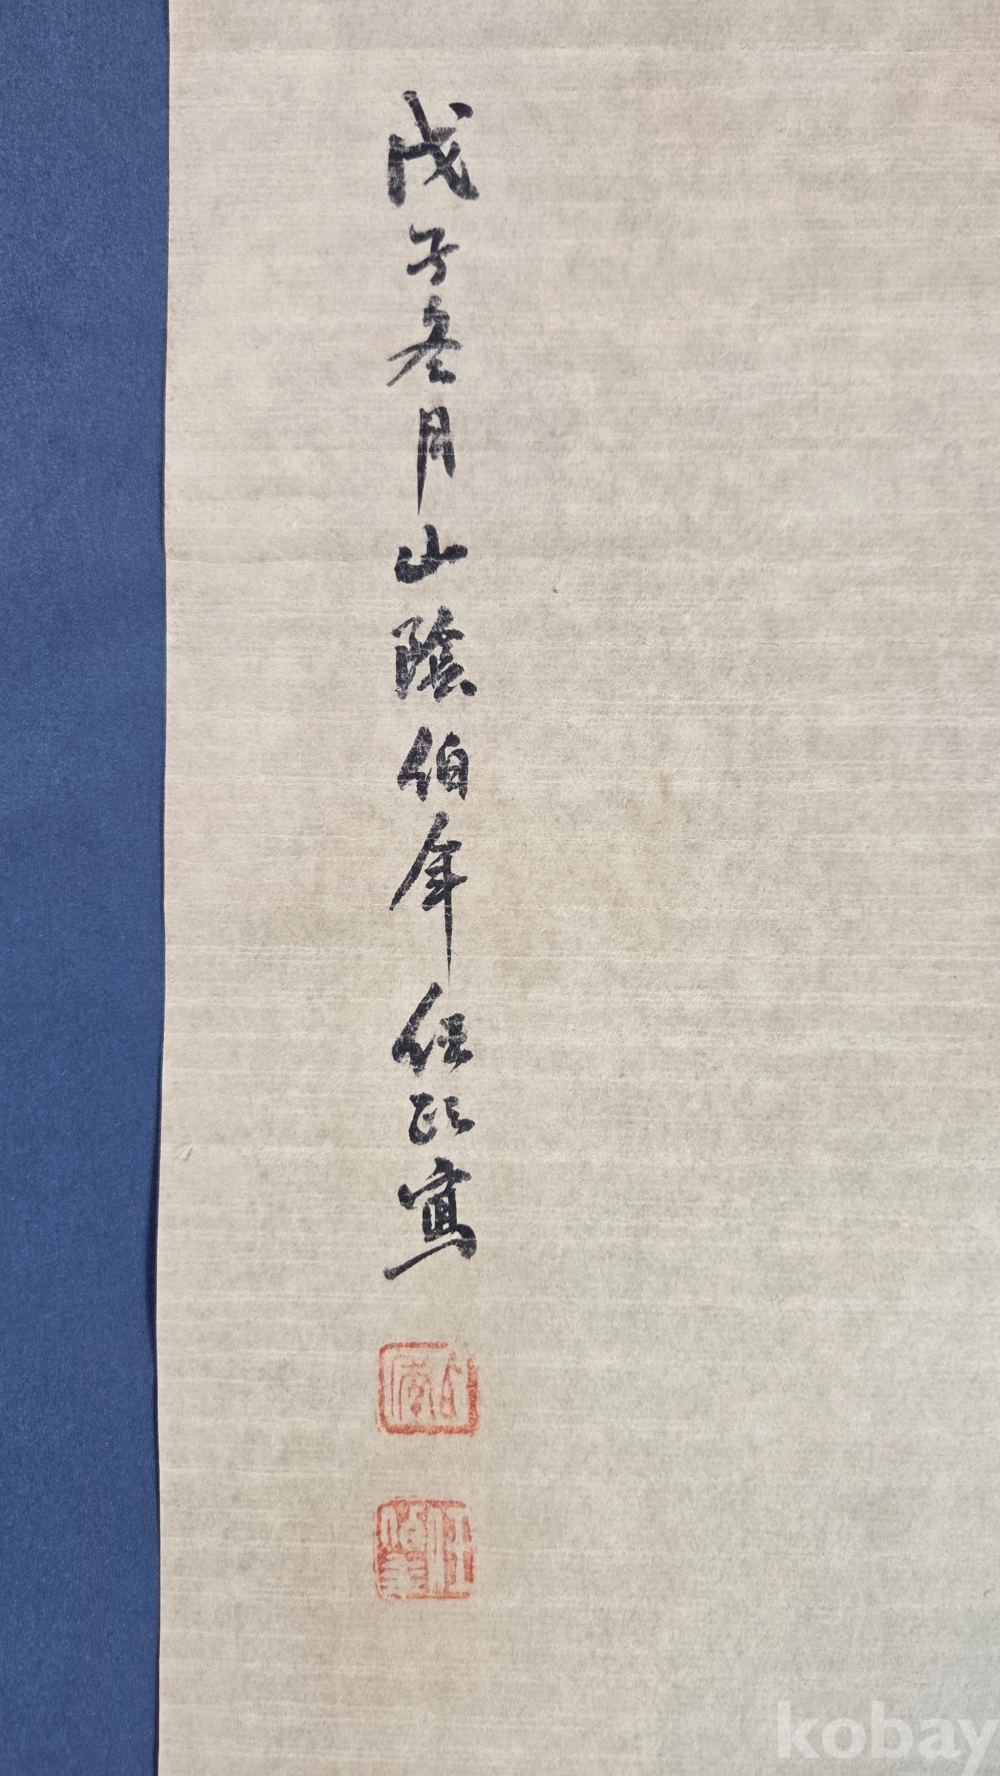 戊子冬月山陰伯年任頤寫
任伯年
kobay